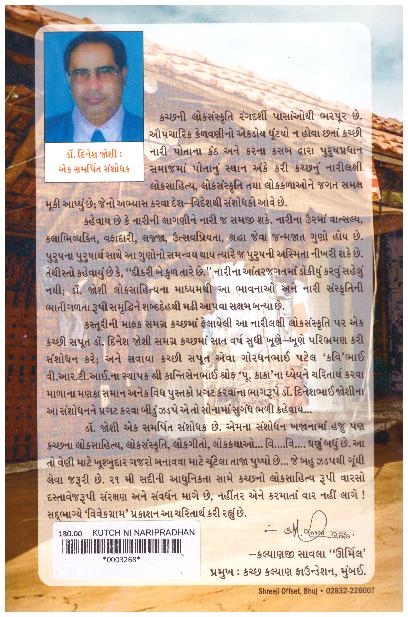 કચ્છની લોકસંસ્કૃતિ રંગદર્શી પાસાંઓથી ભરપૂર છે.
ઔપચારિક કેળવણીનો એકડોય ઘૂંટ્યો ન હોવા છતાં કચ્છી
નારી પોતાના કંઠ અને કરના કસબ દ્વારા પુરુષપ્રધાન
સમાજમાં પોતાનું સ્થાન અંકે કરી કચ્છનું નારીલક્ષી
લોકસાહિત્ય, લોકસંસ્કૃતિ તથા લોકકળાઓને જગત સમક્ષ
મૂકી આપ્યું છે; જેનો અભ્યાસ કરવા દેશ-વિદેશથી સંશોધકો આવે છે.
ડૉ. દિનેશ જોશી :
એક સમર્પિત સંશોધક
કહેવાય છે કે નારીની લાગણીને નારી જ સમજી શકે. નારીના ઉરમાં વાત્સલ્ય,
કલાભિવ્યક્તિ, વફાદારી, લજ્જા, ઉત્સવપ્રિયતા, શ્રદ્ધા જેવા જન્મજાત ગુણો હોય છે.
પુરુષના પુરુષાર્થ સાથે આ ગુણોનો સમન્વય થાય ત્યારે જ પુરુષની અસ્મિતા નીખરી શકે છે.
તેથીસ્તો કહેવાયું છે કે, "દીકરી બે કુળ તારે છે." નારીના આંતરજગતમાં ડોકીયું કરવું સહેલું
નથી; ડૉ. જોશી લોકસાહિત્યના માધ્યમથી આ ભાવનાઓ અને નારી સંસ્કૃતિની
ભાતીગળતા રૂપી સમૃદ્ધિને શબ્દદેહથી મઢી આપવા સક્ષમ બન્યા છે.
કસ્તૂરીની માફક સમગ્ર કચ્છમાં ફેલાયેલી આ નારીલક્ષી લોકસંસ્કૃતિ પર એક
કચ્છી સપૂત ડૉ. દિનેશ જોશી સમગ્ર કચ્છમાં સાત વર્ષ સુધી ખૂણે-ખૂણે પરિભ્રમણ કરી
સંશોધન કરે; અને સવાયા કચ્છી સપૂત એવા ગોરધનભાઈ પટેલ 'કવિ'ભાઈ
વી.આર.ટી.આઈ.ના સ્થાપક શ્રી કાન્તિસેનભાઈ શ્રોફ 'પૂ. કાકા'ના ધ્યેયને ચરિતાર્થ કરવા
માળાના મણકા સમાન અનેકવિધ પુસ્તકો પ્રગટ કરવાના ભાગરૂપે ડૉ. દિનેશભાઈ જોશીના
આ સંશોધનને પ્રગટ કરવા બીડું ઝડપે એ તો સોનામાં સુગંધ ભળી કહેવાય...
ડૉ. જોશી એક સમર્પિત સંશોધક છે. એમના સંશોધન ખજાનામાં હજુ પણ
કચ્છના લોકસાહિત્ય, લોકસંસ્કૃતિ, લોકગીતો, લોકકથાઓ... વિ.... વિ.... ઘણું બધું છે. આ
તો વેણી માટે ખૂશબુદાર ગજરો બનાવવા માટે ચૂંટેલા તાજા પુષ્પો છે... જે બહુ ઝડપથી ગૂંથી
લેવા જરૂરી છે. ૨૧ મી સદીની આધુનિકતા સામે કચ્છનો લોકસાહિત્ય રૂપી વારસો
દસ્તાવેજરૂપી સંરક્ષણ અને સંવર્ધન માગે છે, નહીંતર એને કરમાતાં વાર નહીં લાગે !
સદ્‌ભાગ્યે 'વિવેકગ્રામ' પ્રકાશન આ ચરિતાર્થ કરી રહ્યું છે.
180.00 KUTCH NI NARIPRADHAN
*0003268*
-કલ્યાણજી સાવલા "ઊર્મિલ"
પ્રમુખ : કચ્છ કલ્યાણ ફાઉન્ડેશન, મુંબઈ.
Shreeji Offset, Bhuj • 02832-226007